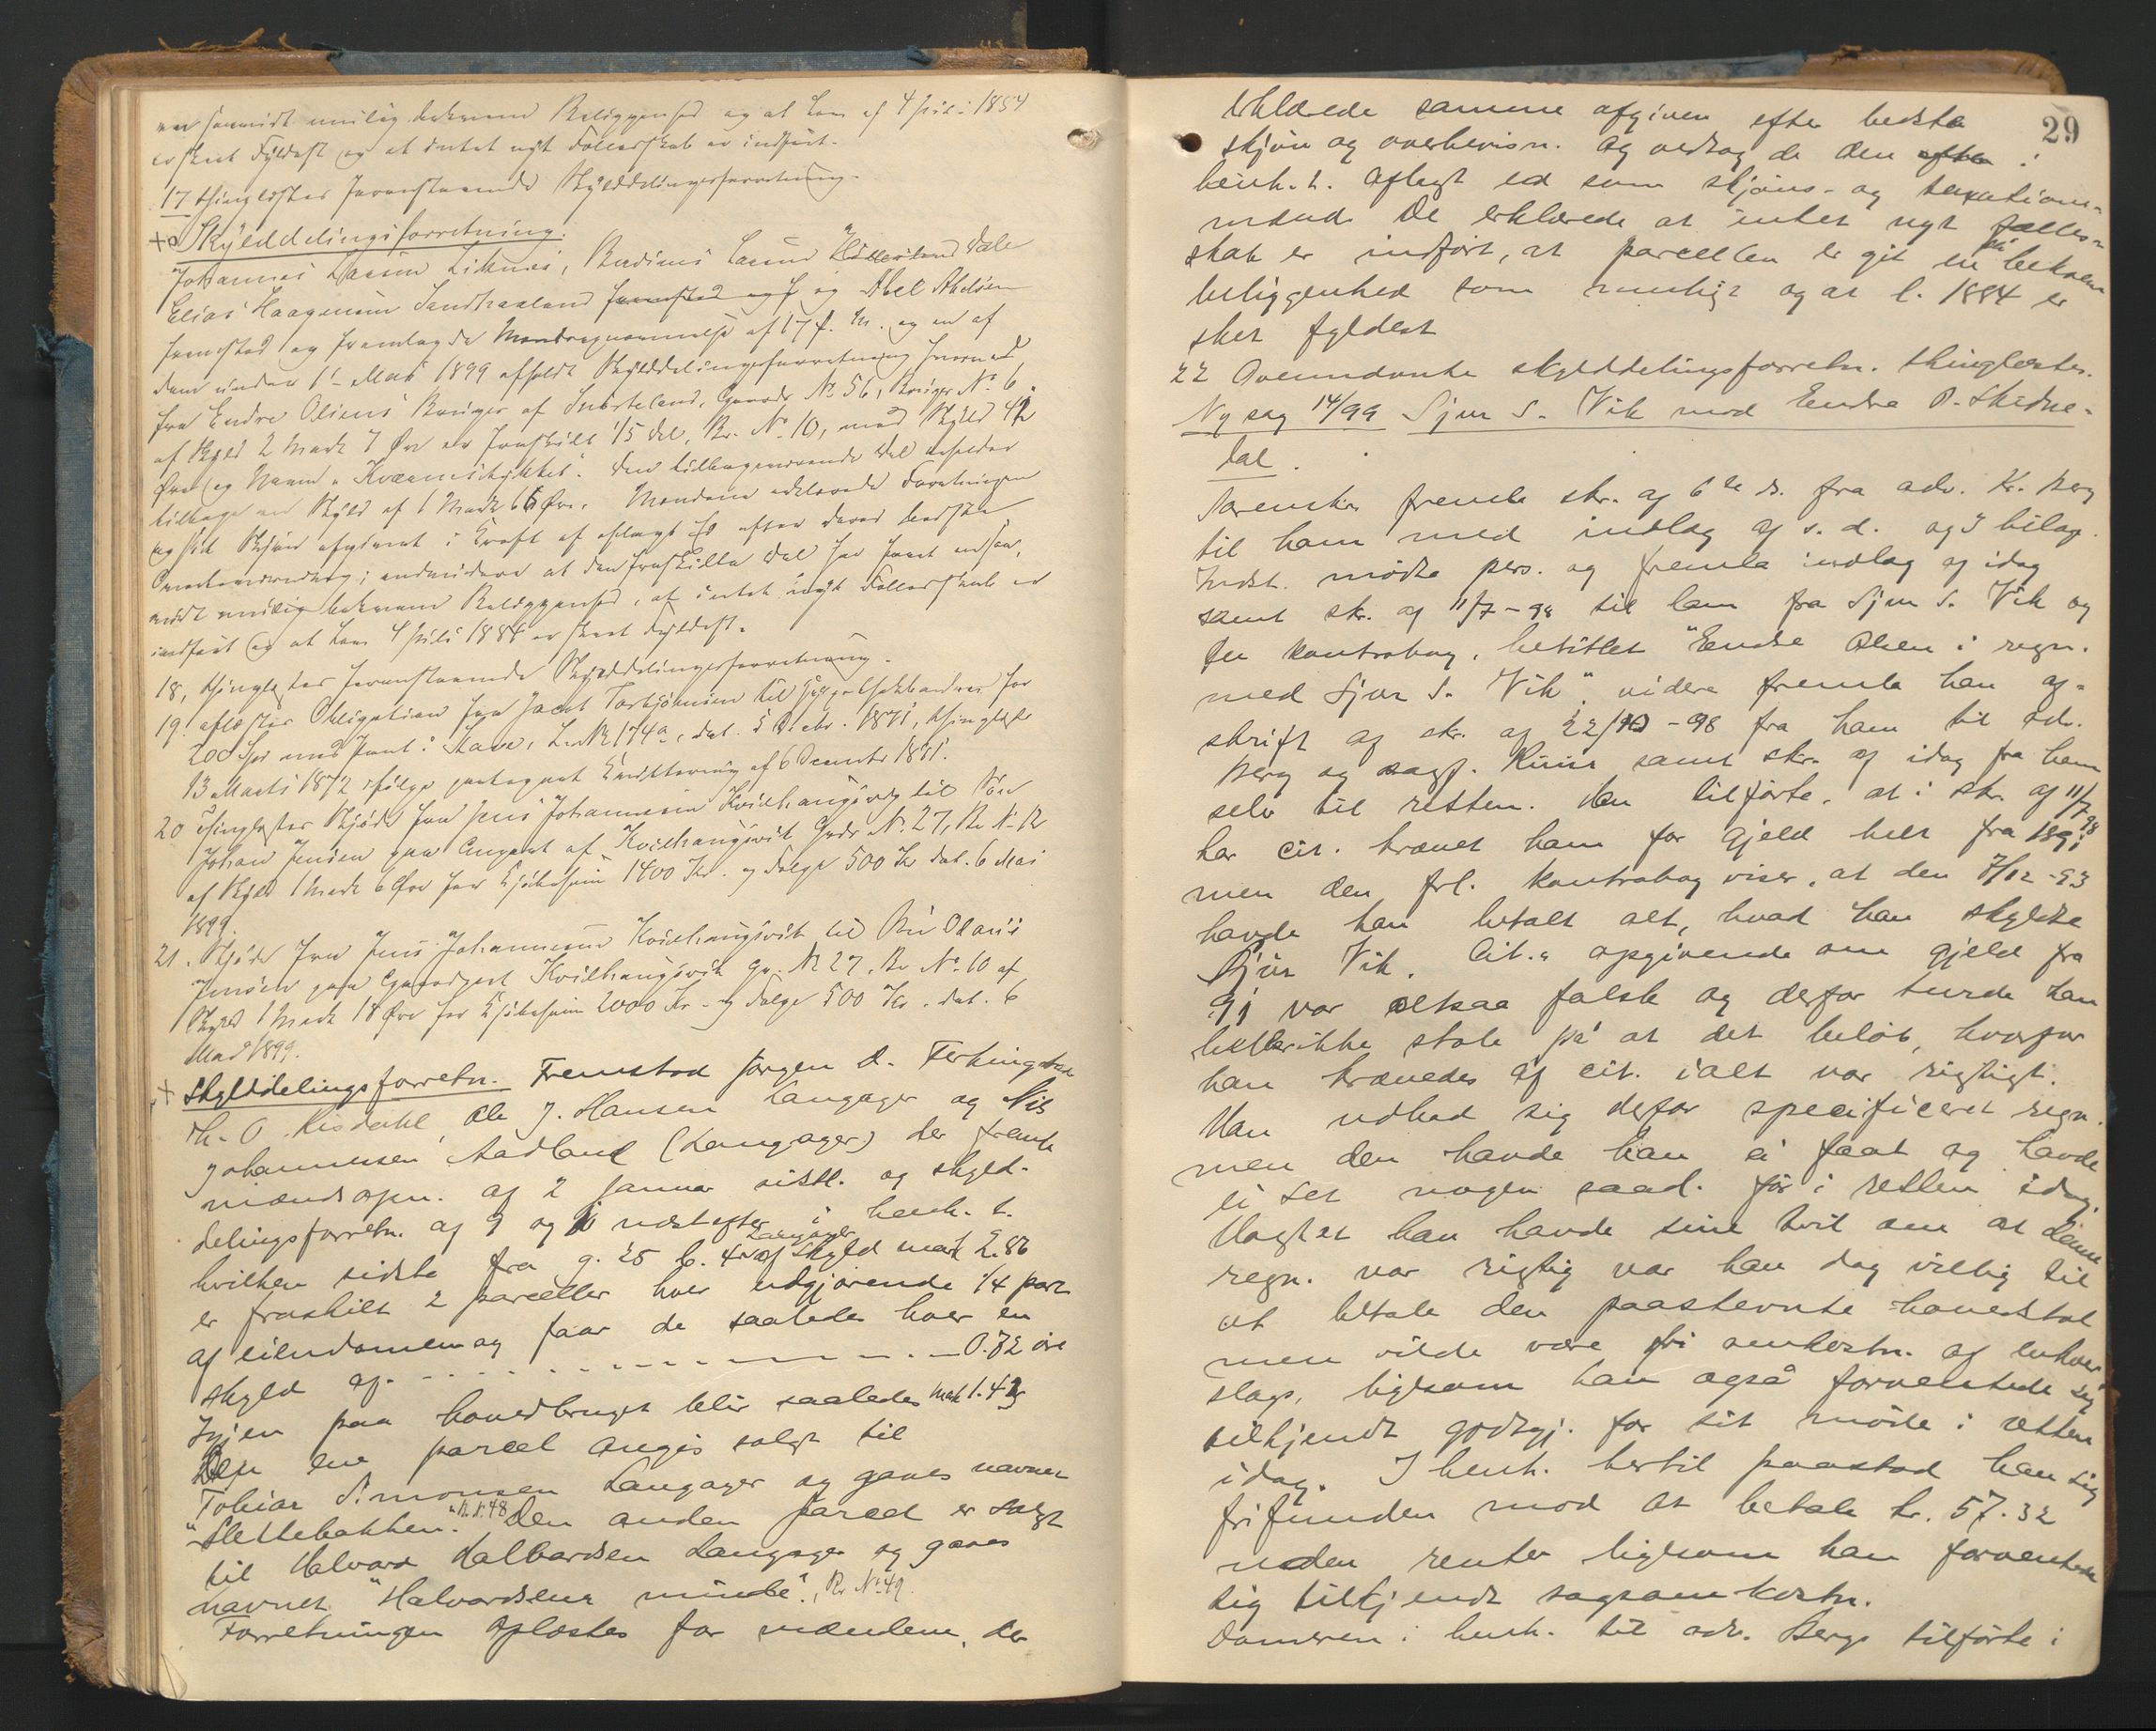 saavidt mulig bekvem Beliggenhed og at Lov af 4 Juli 1884
er skeet Fyldest og at intet nyt Fællesskab er indført.
17 thinglæstes foranstaaende Skylddelingsforretning.
Skylddelingsforretning.
Johannes Larsen Liknes, Rasmus Larsen Dale
Elias Haagensen Sandhaaland og Abel Abelsen
fremstod og fremlagde Mandsopnævnelse af 17 f. M. og en af
dem under 1ste Mai 1899 afholdt Skylddelingsforretning hvorved
fra Endre Olsens Bruger af Gaards No 56, Brugs No 6
af Skyld 2 Mark 7 Øre er fraskilt 1/5 Del, Br. No 10, med Skyld 42
Øre og Navn "Kværnstykket". Den tilbageværende Del beholder
tilbage en Skyld af 1 Mark 65 Øre. Mændene erklærede Forretningen
og sit Skjøn afgivet i Kraft af aflagt Ed efter deres bedste
Overbevisning; endvidere at den fraskilte Del har faaet en saa-
vidt mulig bekvem Beliggenhed, at intet nyt Fællesskab er
indført og at Lov 4 Juli 1884 er skeet Fyldest.
18, thinglæstes foranstaaende Skylddelingsforretning.
19. aflæstes Obligation fra Jacob Torbjørnsen til Hypothekbanken for
200 Spd med Pant i L. No 174a, dat. 5 Decbr. 1871, thinglæst
13 Marts 1872 ifølge paategnet Kvittering af 6 December 1881.
20 thinglæstes Skjøde fra Jens Johannesen Kvilhaugsvik til Søn
Johan Jensen paa Brugs af Kvilhaugsvik Gaards N. 27, Br. N.
af Skyld 1 Mark 6 Øre for Kjøbesum 1400 Kr. og Følge 500 Kr dat. 6 Mai
1899.
21. Skjøde fra Jens Johannesen Kvilhaugsvik til Olaus
Jensen paa Gaardpart Kvilhaugsvik Gr. N 27, Br. No. 10 af
Skyld 1 Mark 18 Øre for Kjøbesum 2000 Kr. og Følge 500 Kr. dat. 6
Mai 1899.
Skylddelingsforretn. Fremstod Jørgen D. Ferkingstad
Th. O. Risdahl, Ole J. Hansen Langager og Nils
Johannessen Aadland (Langager) der freml.
mændsopn. af 2 januar sistl. og skyld-
delingsforretn. af 9 og 10 næstefter i henh. t.
hvilken sidste fra g. 25 b. 4 Langager af skyld mark 2.86
er fraskilt 2 parceller hver udgjørende 1/4 part
af eiendommen og faar de saaledes hver en
skyld af - - - - - - - - - - 0.72 øre
Igjen paa hovedbruget blir saaledes mark 1.42
Den ene parcel angis solgt til
Tobias Simonsen Langager og gaves navnet
"Slettebakken". "B. N. 48 Den anden parcel er solgt
til Halvard Halvardsen Langager og gaves
navnet "Halvardsens minde", Br. No. 49.
Forretningen oplæstes for mændene, der
29
erklærede samme afgiven efter bedste
skjøn og overbevisn. og vedtog de den i
henh. t. aflagt ed som skjøns- og taxations-
mænd. De erklærede at intet nyt fælles-
skab er indført, at parcellen er git en så bekvem
beliggenhed som muligt og at l. 1884 er
sket fyldest
22 Ovennævnte skylddelingsforretn. thinglæstes.
Ny sag 14/99 Sjur S. Vik mod Endre O. Skeдne-
dal.
Sorenskr. fremla skr. af 6te ds. fra adv. Kr. Berg
til ham med indlæg af s. d. og 3 bilag.
Indst. mødte pers. og fremla indlæg af idag
samt skr. af 11/7-98 til ham fra Sjur S. Vik og
en kontrabog, betitlet "Endre Olsen i regn.
med Sjur S. Vik". videre fremla han af-
skrift af skr. af 22/10-98 fra ham til adv.
Berg og sagf. samt skr. af idag fra ham
selv til retten. Han tilførte, at i skr. af 11/7 98
har cit. krævet ham for gjeld helt fra 1891
men den frl. kontrabog viser, at den 7/12-93
havde han betalt alt, hvad han skyldte
Sjur Vik. Cit.s opgivende om gjeld fra
91 var altsaa falsk og derfor turde han
heller ikke stole på at det beløb, hvorfor
han krævedes af cit. ialt var rigtigt.
Han udbad sig derfor specificeret regn.
men den havde han ei faat og havde
ei set nogen saad. før i retten idag.
Uagtet han havde sine tvil om at denne
regn. var rigtig var han dog villig til
at betale den paastevnte hovedstol
men vilde være fri omkostn. af enhver
slags, ligesom han også forventede sig
tilkjendt godtgj. for sit møde i retten
idag. I henh. hertil paastod han sig
frifunden mod at betale kr. 57.32
uden renter ligesom han forventede
sig tilkjendt sagsomkostn.
Dommeren i henh. til adv. Bergs tilførte i